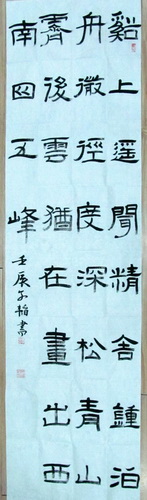 谿上遥聞精舍鍾泊
舟微徑度深松青山
霽後雲猶在畫出西
南四五峰
壬辰子韜書